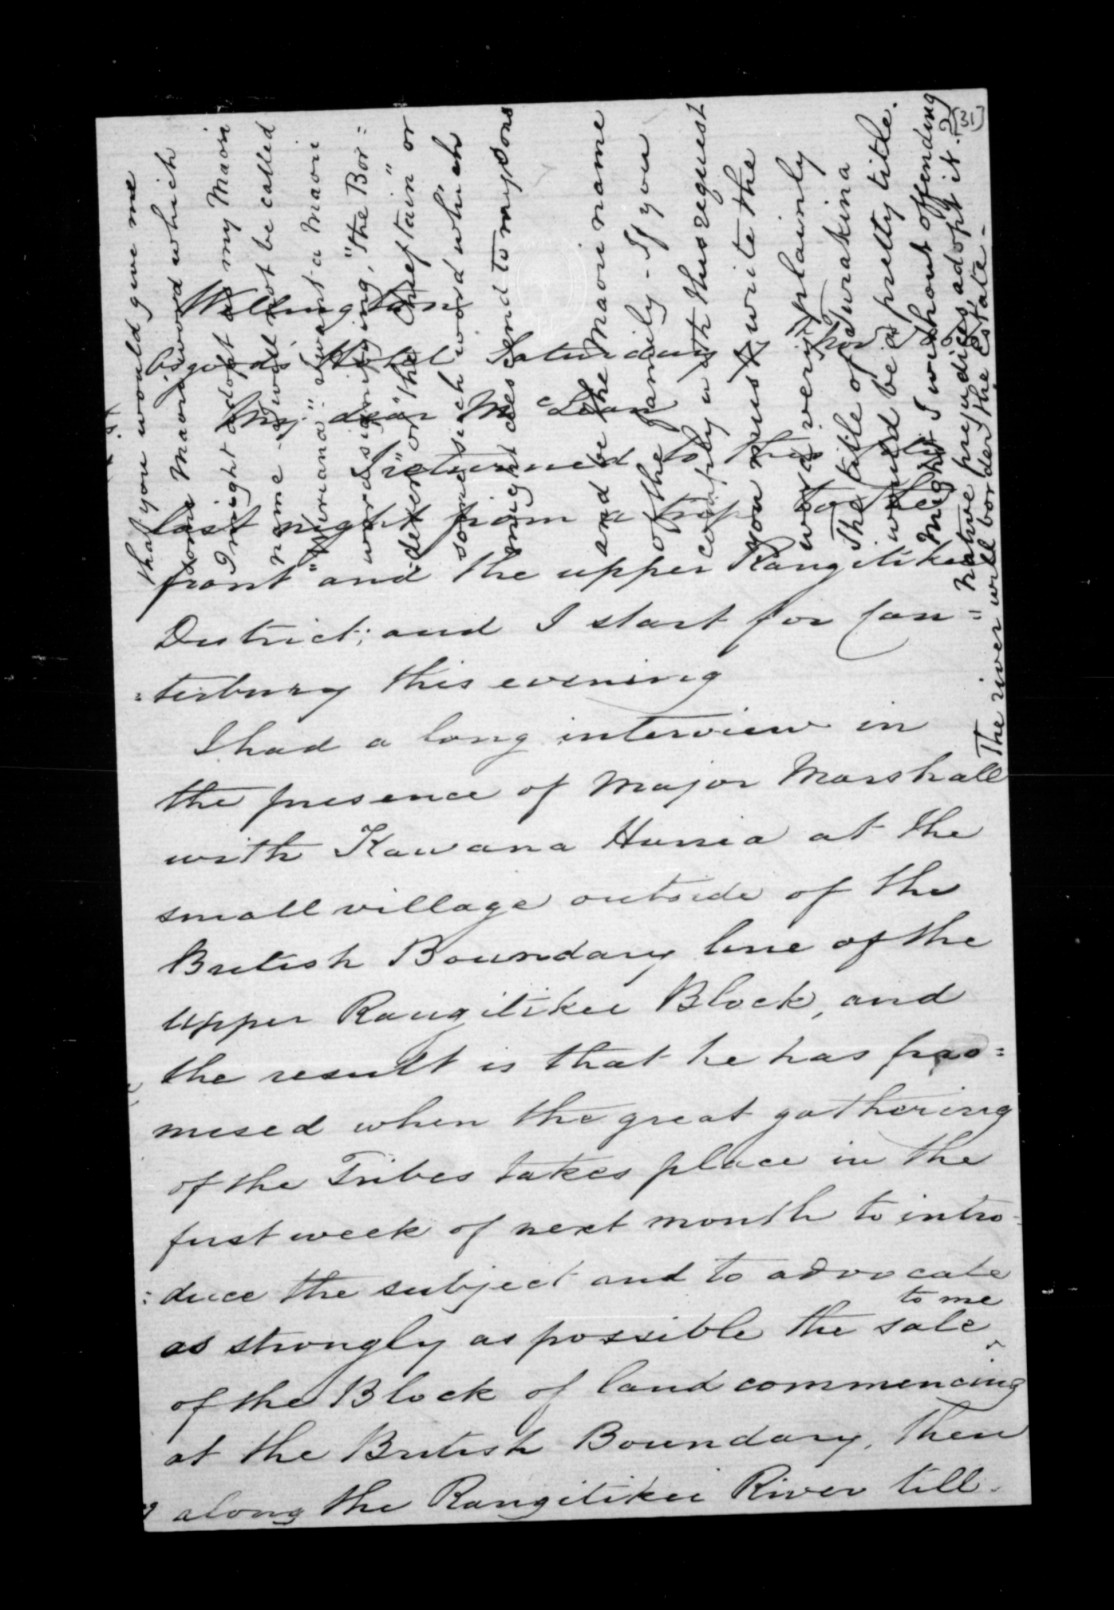 [31]
Wellington
Osgood's Hotel Saturday Nov 1868
My dear McLean
I returned to this
last night from a trip to the
front "and the upper Rangitikei
District; and I start for Can=
=terbury this evening
I had a long interview in
the presence of Major Marshall
with Kawana Hunia at the
small village outside of the
British Boundary line of the
upper Rangitikei Block, and
the result is that he has pro=
mised when the great gathering
of the Tribes takes place in the
first week of next month to intro=
:duce the subject and to advocate
to me
as strongly as possible the sale ^
of the Block of land commencing
at the British Boundary, then
along the Rangitikei River till
that you would give me
some Maori word which
I might adopt as my Maori
name - I will not be called
I want a Maori
word signifying, "the Bor=
:derer" or "the Chieftain" or
some such word which
might descend to my sons
and be the Maori name
of the family - If you
comply with this request
you must write the
word very plainly
The title of Turakina
would be a pretty title.
Might I without offending
native prejudices adopt it. ?
The river will border the Estate -